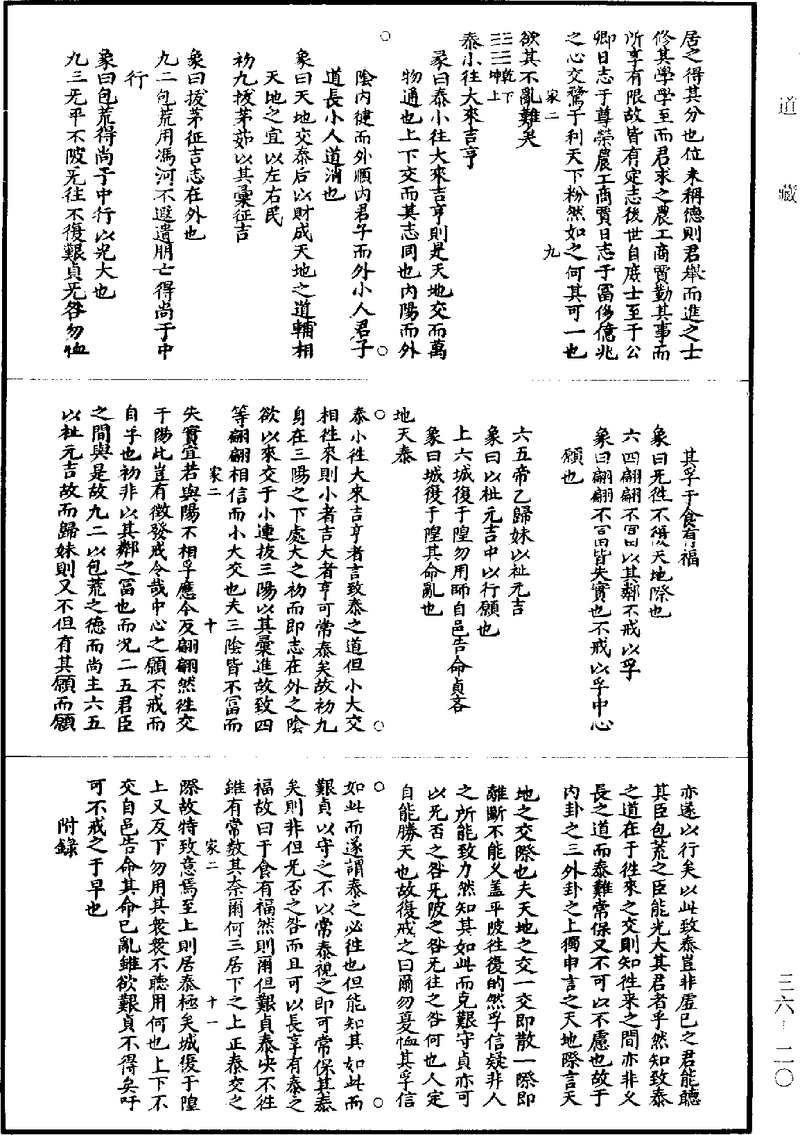 道藏
居之得其分也位未稱德則君舉而進之士
修其學學至而君求之農工商賈勤其事而
所享有限故皆有定志後世自庶士至于公
卿日志于尊榮農工商賈日志于富侈億兆
之心交騖于利天下紛然如之何其可一也
家二 九
欲其不亂難矣
乾下
坤上
泰小往大來吉亨
彖曰泰小往大來吉亨則是天地交而萬
物通也上下交而其志同也內陽而外
陰內健而外順內君子而外小人君子
道長小人道消也
象曰天地交泰后以財成天地之道輔相
天地之宜以左右民
初九拔茅茹以其彙征吉
象曰拔茅征吉志在外也
九二包荒用馮河不遐遺朋亡得尚于中
行
象曰包荒得尚于中行以光大也
九三无平不陂无往不復艱貞无咎勿恤
其孚于食有福
象曰无往不復天地際也
六四翩翩不富以其鄰不戒以孚
象曰翩翩不富皆失實也不戒以孚中心
願也
六五帝乙歸妹以祉元吉
象曰以祉元吉中以行願也
上六城復于隍勿用師自邑告命貞吝
象曰城復于隍其命亂也
地天泰
泰小往大來吉亨者言致泰之道但小大交
相往來則小者吉大者亨可常泰矣故初九
身在三陽之下處大之初而即志在外之陰
欲以來交于小連拔三陽以其彙進故致四
等翩翩相信而小大交也夫三陰皆不富而
家二 十
失實宜若與陽不相孚應今反翩翩然往交
于陽此豈有徵發戒令哉中心之願不戒而
自孚也初非以其鄰之富也而況二五君臣
之間與是故九二以包荒之德而尚主六五
以祉元吉故而歸妹則又不但有其願而願
亦遂以行矣以此致泰豈非虛已之君能聽
其臣包荒之臣能光大其君者乎然知致泰
之道在于往來之交則知往來之間亦非乂
長之道而泰難常保又不可以不慮也故于
內卦之三外卦之上獨申言之天地際言天
地之交際也夫天地之交一交即散一際即
離斷不能乂蓋平陂往復的然孚信疑非人
之所能致力然知其如此而克艱守貞亦可
以无否之咎无陂之咎无往之咎何也人定
自能勝天也故復戒之曰爾勿憂恤其孚信
如此而遂謂泰之必往也但能知其如此而
艱貞以守之不以常泰視之即可常保其泰
矣則非但无否之咎而且可以長享有泰之
福故曰于食有福然則爾但艱貞泰央不往
雖有常數其奈爾何三居下之上正泰交之
家二 十一
際故特致意焉至上則居泰極矣城復于隍
上又反下勿用其衆衆不聽用何也上下不
交自邑告命其命已亂雖欲艱貞不得矣吁
可不戒之于早也
附錄
三六-二〇